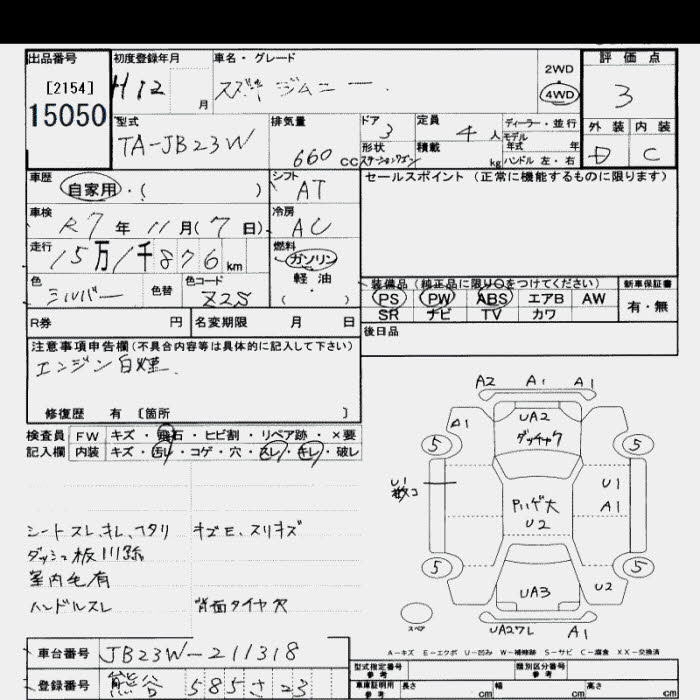 出品番号 初度登録年月 車名・グレード 評価点
[2154] H12 月 スズキ ジムニー 2WD 4WD 3
15050 型式 排気量 ドア 定員 ディーラー・並行 外装 内装
TA-JB23W 660 CC 3 4 人 モデル年式 年 D C
形状 ステーションワゴン 積載 kg ハンドル 左・右
車歴 自家用・( ) シフト AT セールスポイント(正常に機能するものに限ります)
車検 R7年11月(7日) 冷房 AC
走行 15万1千876km 燃料 ガソリン
軽油・( )
色 シルバー 色替 色コード Z2S
装備品(純正品に限り○をつけてください) 新車保証書
PS PW ABS エアB AW 有・無
SR ナビ TV カワ
R券 円 名変期限 月 日 後日品
注意事項申告欄(不具合内容等は具体的に記入して下さい)
エンジン白煙.
修復歴 有 [箇所 ]
検査員 FW キズ・飛石・ヒビ割・リペア跡・×要
記入欄 内装 キズ・汚レ・コゲ・穴・スレ・キレ・破レ
A2 A1 A1
A1 UA2
ダッシャク
5 5
U1 U1
A1
U2
5 5
UA3 U2
スペア UA27L A1
シートスレ、キレ、ヘタリ キズE、スリキズ
室内毛有
ハンドルスレ 背面タイヤ穴
A-キズ E-エクボ U-凹み W-補修跡 S-サビ C-腐食 XX-交換済
車台番号 JB23W-211318 型式指定番号 参考 類別区分番号 参考
登録番号 熊谷 585 さ 23 車庫証明用 参考 長さ cm 幅 cm 高さ cm